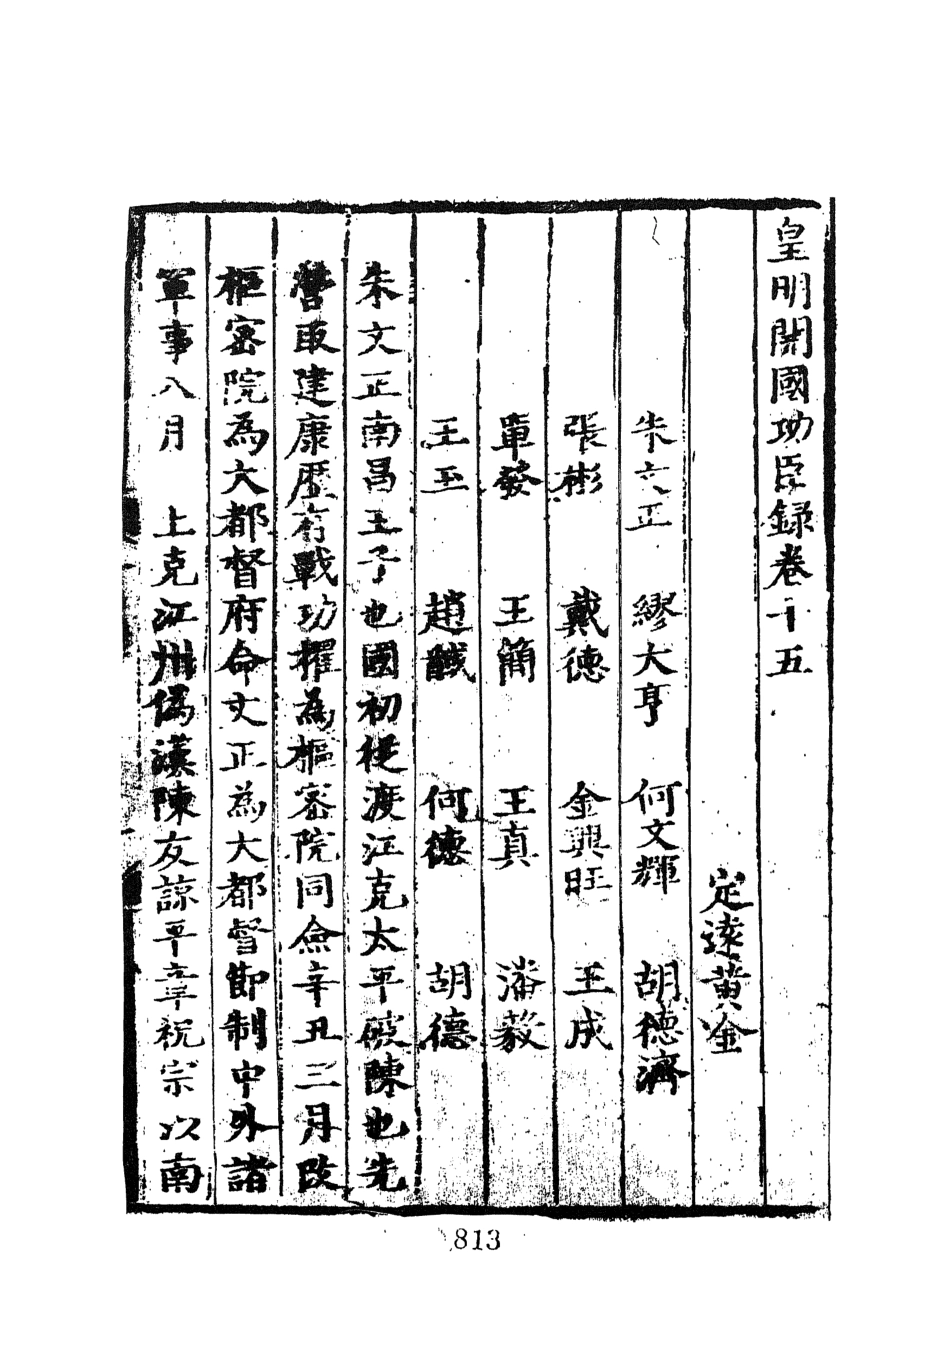 皇明開國功臣録卷十五
定遠黄金
朱文正 繆大亨 何文輝 胡德濟
張彬 戴德 金興旺 王成
單發 王簡 王真 潘敖
王玉 趙 何德 胡德
朱文正南昌王子也國初從渡江克太平破陳也先
營取建康歷有戰功擢為樞密院同僉辛丑三月改
樞密院為大都督府命文正為大都督節制中外諸
軍事八月 上克江州偽漢陳友諒平章祝宗以南
813